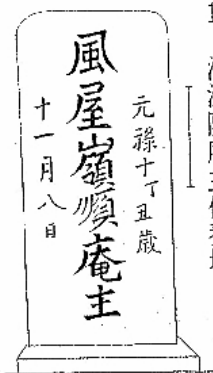 元祿十丁丑歳
風屋嶺順庵主
十一月八日